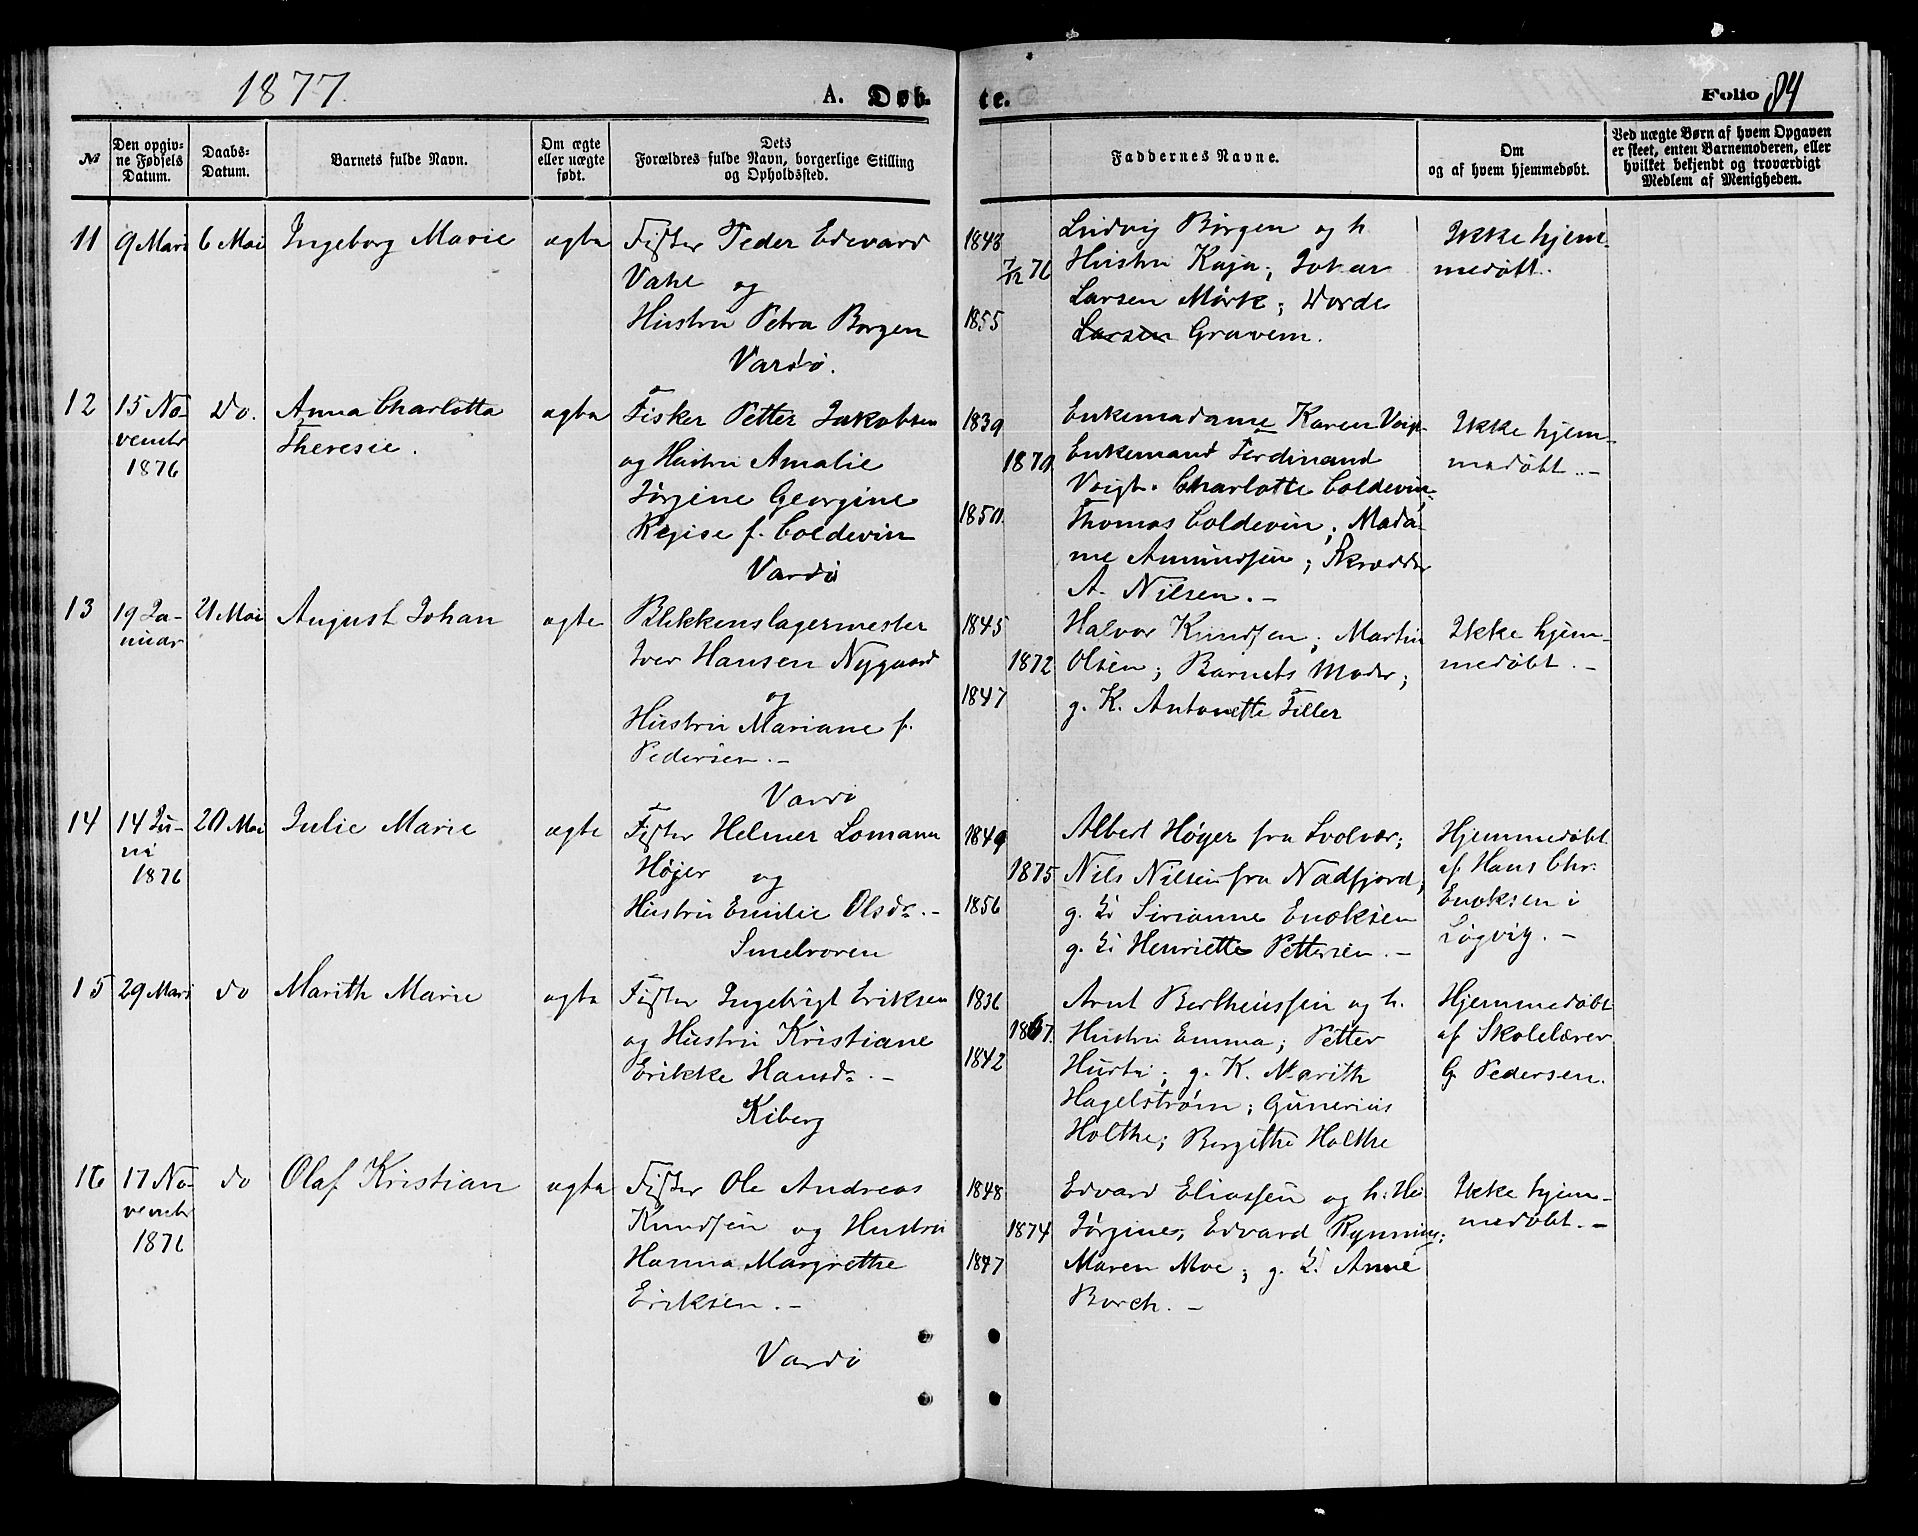 1877.
A. Døb-
te.
Folio 84
No
Den opgiv-
ne Fødsels
Datum.
Daabs-
Datum.
Barnets fulde Navn.
Om ægte
eller uægte
født.
Dets
Forældres fulde Navn, borgerlige Stilling
og Opholdssted.
Faddernes Navne.
Om
og af hvem hjemmedøbt.
Ved uægte Børn af hvem Opgaven
er skeet, enten Barnemoderen, eller
hvilket bekjendt og troværdigt
Medlem af Menigheden.
11
9 Mars
6 Mai
Ingeborg Marie
ægte
Fisker Peder Edevard
og
Hustru Petra Borgen
Vardø.
1848
7/12 76
1855
Ludvig Børgen og h.
Hustru Kaja;
Larsen Mørk; Dorde
Larsen Gravem.
Ikke hjem-
medøbt.
12
15 No-
vembr
1876
Do.
Anna Charlotta
Theresie.
ægte
Fisker Petter Jakobsen
og Hustru Amalie
Jørgine Georgine
Regise f. Coldevin
Vardø
1839
1870
1850.
Enkemadame Karen Voigt
Enkemand Ferdinand
Voigt. Charlotte Coldevin;
Thomas Coldevin; Mada-
me Amundsen; Skrædder
A. Nilsen. -
Ikke hjem-
medøbt. -
13
19 Ja-
nuar
21 Mai
August Johan
ægte
Blikkenslagermester
Iver Hansen Nygaard
og
Hustru Mariane f.
Pedersen. -
Vardø
1845
1872
1847
Halvor Knudsen; Martin
Olsen; Barnets Moder;
g. K. Antonette Filler
Ikke hjem-
medøbt. -
14
14 Ju-
ni
1876
20 Mai
Julie Marie
ægte
Fisker Helmer Lomann
Højer og
Hustru Emilie Olsdr. -
Smelroren
1849
1875
1856
Albert Høyer fra Svolvær;
Nils Nilsen fra Nadfjord,
g. K. Sirianne Enoksen
g. K. Henriette Pettersen. -
Hjemmedøbt
af Hans Chr.
Enoksen i
Løgvig. -
15
29 Mars
do
Marith Marie
ægte
Fisker Ingebrigt Eriksen
og Hustru Kristiane
Erikke Hansdr. -
Kiberg
1836
1867.
1842
Arnt Bertheussen og h.
Hustru Emma; Petter
Hurti; g. K. Marith
Hagelstrøm; Gunerius
Holthe; Bergithe Holthe
Hjemmedøbt
af Skolelærer
G. Pedersen.
16
17 No-
vembr
1876
do
Olaf Kristian
ægte
Fisker Ole Andreas
Knudsen og Hustru
Hanna Margrethe
Eriksen. -
Vardø
1848
1874
1847
Edvard Eliassen og h. Hu
Jørgine; Edvard Rynning;
Maren Moe; g. K. Anne
Borch. -
Ikke hjem-
medøbt. -